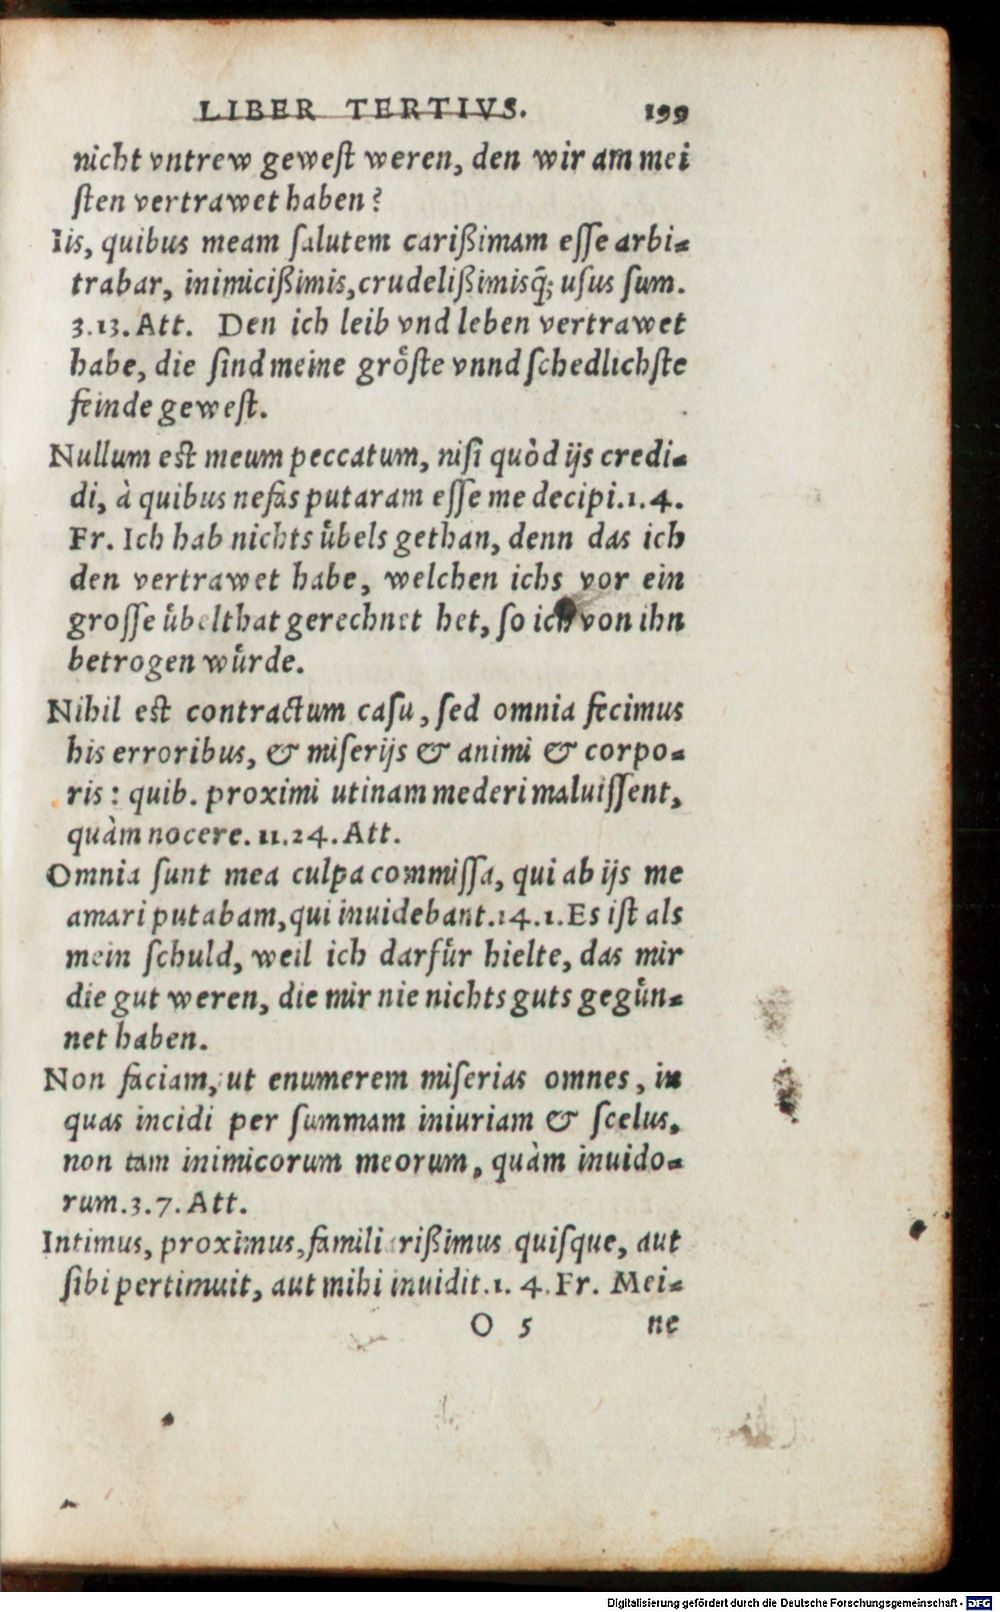 LIBER TERTIVS. 199
nicht vntrew geweſt weren, den wir am mei
ſten vertrawet haben?
Iis, quibus meam ſalutem carißimam eſſe arbi-
trabar, inimicißimis, crudelißimisq́; uſus ſum.
3.13. Att. Den ich leib vnd leben vertrawet
habe, die ſind meine groͤſte vnnd ſchedlichſte
feinde geweſt.
Nullum est meum peccatum, niſi quòd ijs credi-
di, à quibus nefas putaram eſſe me decipi. 1. 4.
Fr. Ich hab nichts uͤbels gethan, denn das ich
den vertrawet habe, welchen ichs vor ein
groſſe uͤbelthat gerechnet het, ſo ich von ihn
betrogen wuͤrde.
Nihil est contractum caſu, ſed omnia fecimus
his erroribus, & miſerijs & animi & corpo-
ris: quib. proximi utinam mederi maluiſſent,
quàm nocere. 11.24. Att.
Omnia ſunt mea culpa commiſſa, qui ab ijs me
amari putabam, qui inuidebant. 14.1. Es iſt als
mein ſchuld, weil ich darfuͤr hielte, das mir
die gut weren, die mir nie nichts guts geguͤn-
net haben.
Non faciam, ut enumerem miſerias omnes, in
quas incidi per ſummam iniuriam & ſcelus,
non tam inimicorum meorum, quàm inuido-
rum. 3. 7. Att.
Intimus, proximus, familiarißimus quiſque, aut
ſibi pertimuit, aut mihi inuidit. 1. 4. Fr. Mei-
O 5 ne
Digitalisierung gefördert durch die Deutsche Forschungsgemeinschaft - DFG